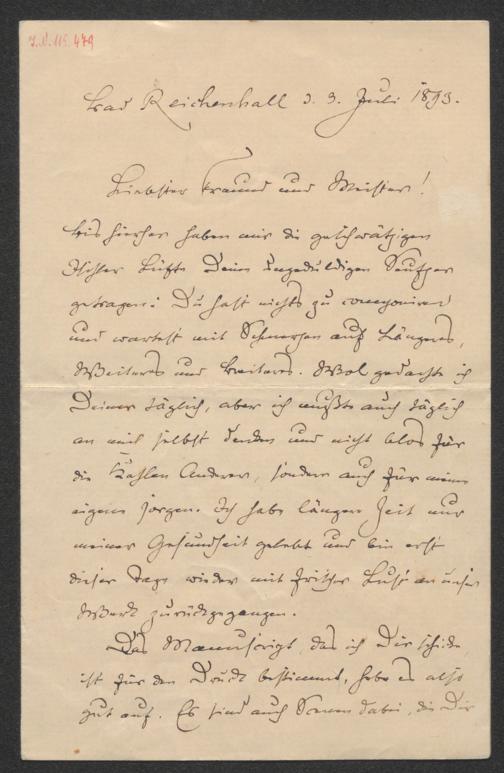 J.N. 115.479
Bad Reichenhall d. 3. Juli 1893.
Liebster Freund und Meister!
Bis hierher haben mir die geschwätzigen
Ischler Lüfte Deine ungeduldigen Seufzer
getragen: Du hast nichts zu componiren
und wartest mit Schmerzen auf Längeres,
Weiteres und Breiteres. Wol gedachte ich
Deiner täglich, aber ich mußte auch täglich
an mich selbst denken und nicht blos für
die Anderer, sondern auch für meine
eigene sorgen. Ich habe längere Zeit nur
meiner Gesundheit gelebt und bin erst
dieser Tage wieder mit frischer Lust an unser
Werk zurückgegangen.
Das Manuscript, das ich Dir schicke,
ist für den Druck bestimmt, hebe es also
gut auf. Es sind auch Scenen dabei, die Dir